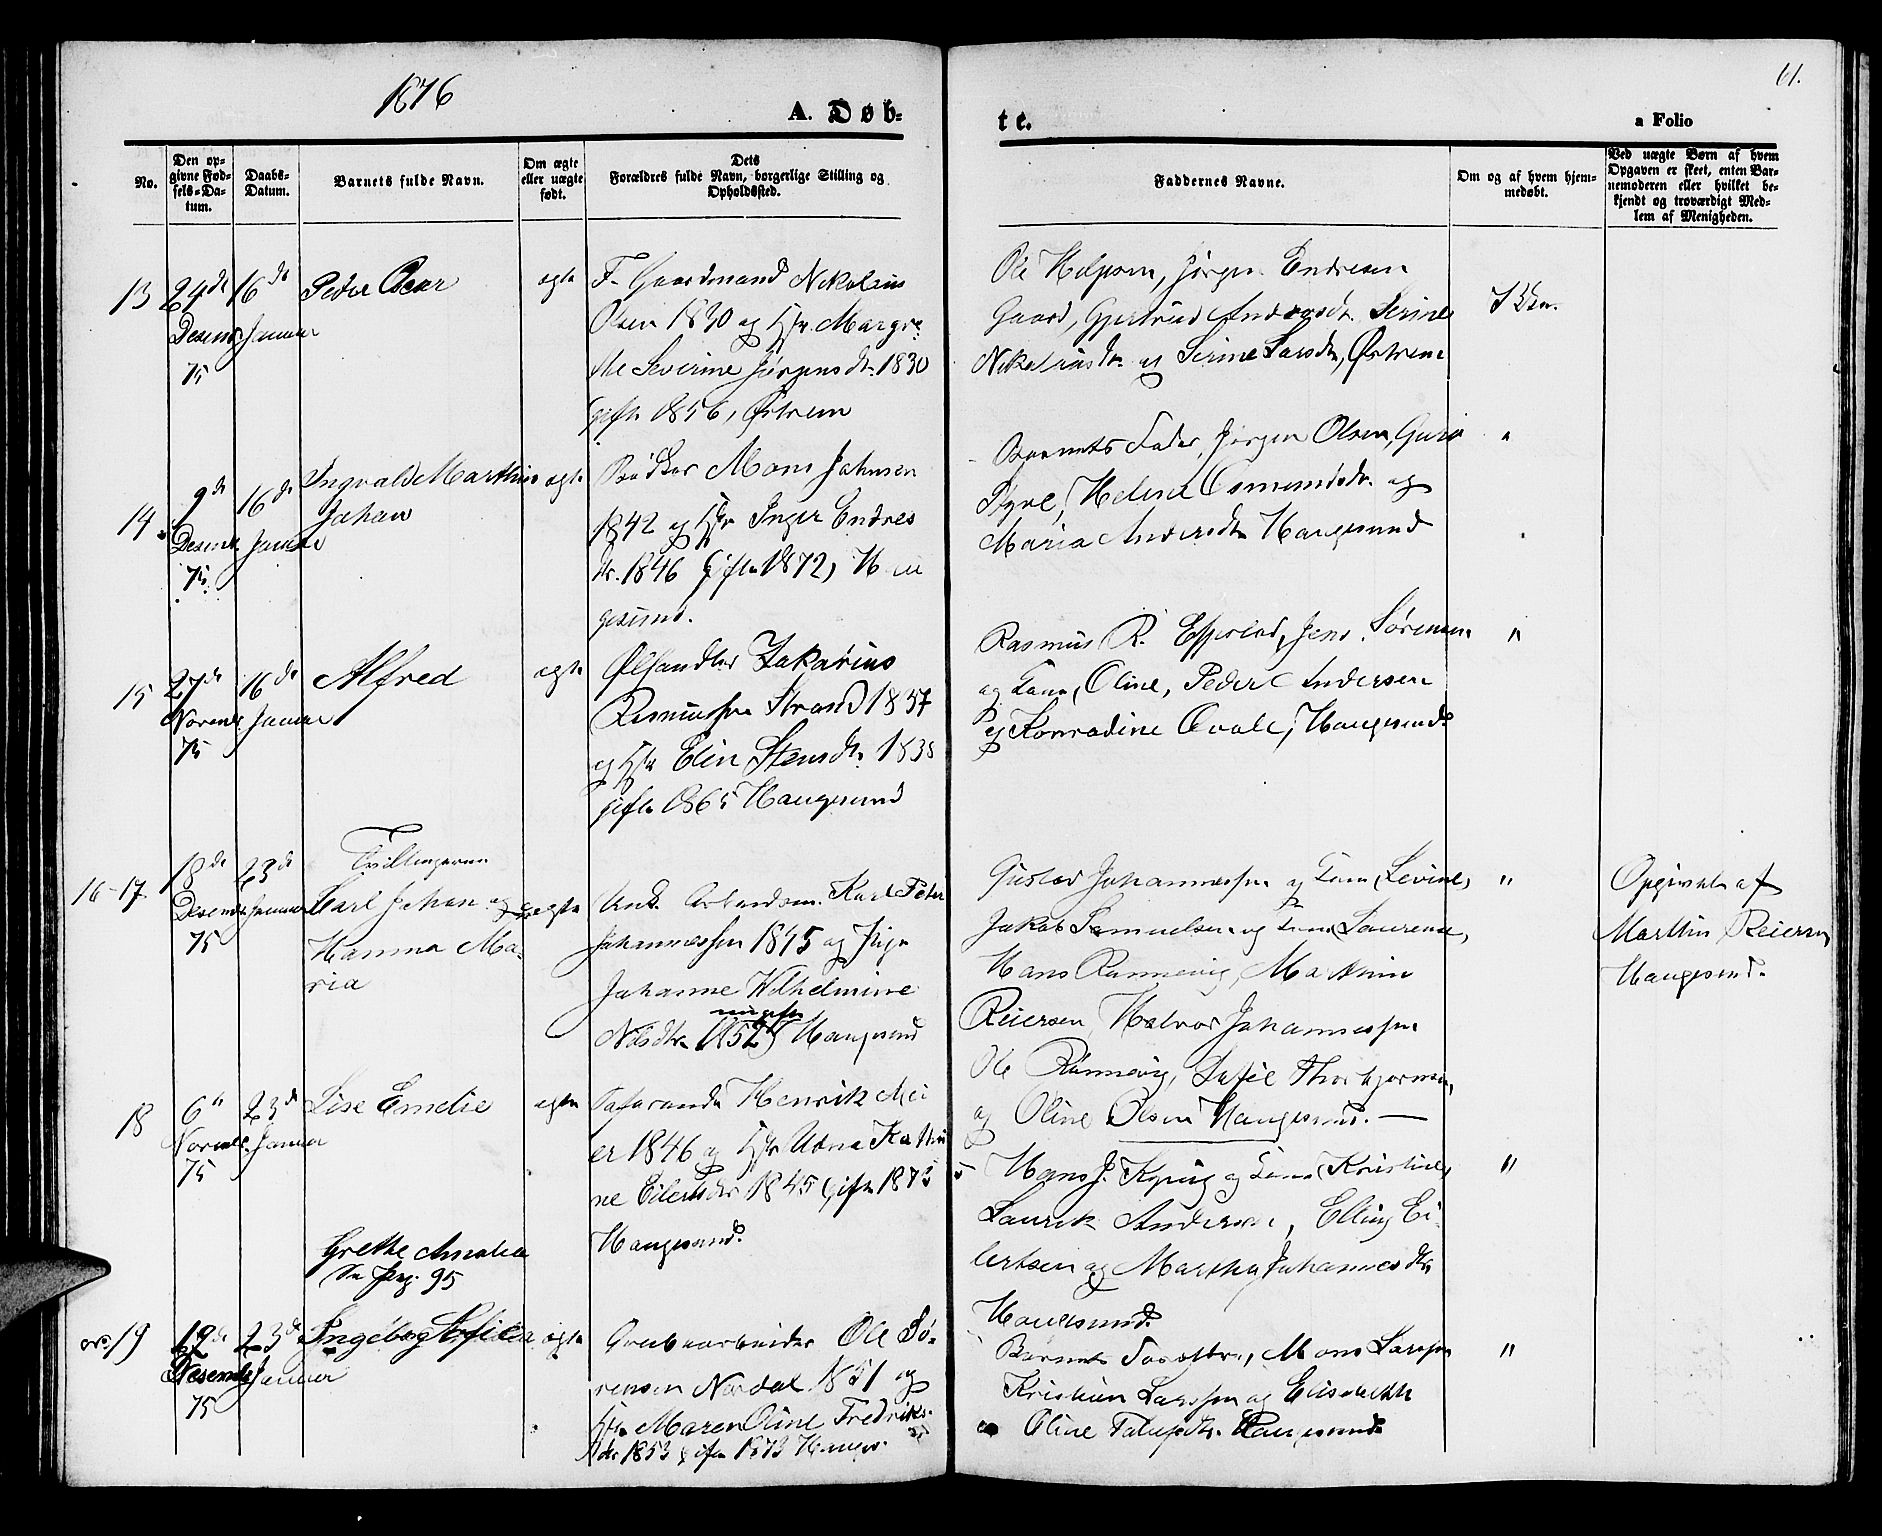 1876
61.
A. Døb-
te.
a Folio
No.
Den op-
givne Fød-
sels-Da-
tum.
Daabs-
Datum.
Barnets fulde Navn.
Om ægte
eller uægte
født.
Dets
Forældres fulde Navn, borgerlige Stilling og
Opholdssted.
Faddernes Navne.
Om og af hvem hjem-
medøbt.
Ved uægte Børn af hvem
Opgaven er skeet, enten Bar-
nemoderen eller hvilket be-
kjendt og troværdigt Med-
lem af Menigheden.
13
24de
Desembr
75
16de
Januar
Peder Oscar
ægte
F. Gaardmand Nikolaus
Olsen 1830 og Hstr Margre-
the Severine Jørgensdtr. 1830
gift 1856, Østrem
Ole Jørgen Endresen
Gaard, Gjertrud Andersdt. Serine
Nikolausdtr og Serine Larsdtr, Østrem
14
9de
Desembr
75
16de
Januar
Ingvald Marthin
Johan
ægte
Bødker Mons Johnsen
1842 og Hstr Inger Endres
dtr. 1846 gift 1872, Hau
gesund.
Barnets Fader, Jørgen Olsen, Guro
Helene Osmundsdtr. og
Maria Andersdtr Haugesund
"
15
27de
Novembr
75
16de
Januar
Alfred
ægte
Ølhandler Zakarius
Rasmussen Strand 1837
og Hstr Elin Stensdtr 1838
gift 1865 Haugesund
Rasmus R. Jens Sørensen
og Kone, Oline, Peder Andersen
og Konradine Qvale, Haugesund
"
16-17
18de
Desembr
75
23de
Januar
Tvillingerne
Carl Johan og
Hanna Ma-
ria
uægte
Karl Peter
Johannessen 1845 og Pige
Johanne Wilhelmine
ungift
Nilsdtr 1852 Haugesund
Gustav Johannessen og Kone Levine,
Jakob Samuelsen og Kone Laurense,
Hans Rønnevig, Marthin
Reiersen, Halvor Johannessen
Ole Rønnevig,
og Oline Olsen Haugesund. —
"
Opgivet af
Marthin Reiersen
Haugesund.
18
6te
Novembr
75
23de
Januar
Lise Emelie
ægte
Henrik Mei
er 1846 og Hstr Kathri
ne Eilertsdtr 1845 gift 1875
Haugesund.
Hans J. og Kone Kristine,
Laurits Andersen, Elling Ei-
lertsen og Martha Johannesdtr,
Haugesund.
"
Grethe Amalia
95
19
19de
Desembr
75
23de
Januar
Ingeborg Sofie
ægte
Grubearbeider Ole Sø-
rensen Nordal 1851 og
Hstr Maren Oline Fredriks-
dtr 1853 gift 1873 Hauges-
Barnets Forældre, Mons Larsen
Kristian Larssen og Elisabeth
og Oline Haugesund
"